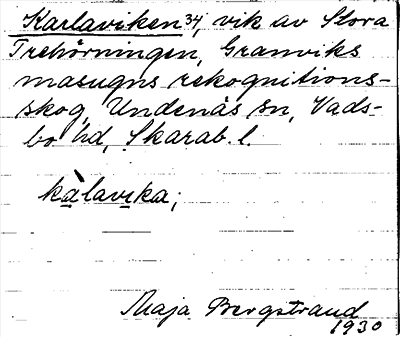 Karlaviken 34, vik av Stora
Trehörningen, Granviks
masugns rekognitions-
skog, Undenäs sn, Vads-
bo hd, Skarab. l.
kàlavika;
Maja Bergstrand
1930